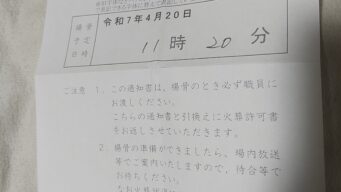 揚骨
予定
日時
令和7年4月20日
11時20分
ご注意 1. この通知書は、揚骨のとき必ず職員に
お渡しください。
こちらの通知書と引換えに火葬許可書
をお返しさせていただきます。
2. 揚骨の準備ができましたら、場内放送
等でご案内いたしますので、待合等で
お待ちください。